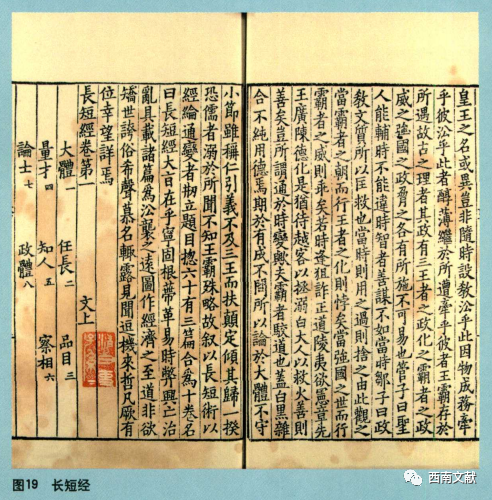 皇王之名或異豈非隨時設教沿乎此因物成務牽
乎彼沿乎此者醇薄繼於所遭牽乎彼者王霸存於
所遇故古之理者其政有三王者之政化之霸者之政
威之強國之政脅之各有所施不可易也管子曰聖
人能輔時不能違時智者善謀不如當時鄒子曰政
教文質所以匡救也當時則用之過則捨之由此觀之
當霸者之朝而行王者之化則悖矣當強國之世而行
霸者之威則乖矣若時逢狙詐正道陵夷欲憲章先
王廣陳德化是猶待越客以拯溺白大人以救火善則
善矣豈所謂通於時變歟夫霸者駮道也蓋白黑雜
合不純用德焉期於有成不問所以論於大體不守
小節雖稱仁引義不及三王而扶顛定傾其歸一揆
恐儒者溺於所聞不知王霸殊略故叙以長短術以
經綸通變者刱立題目揔六十有三篇合為十卷名
曰長短經大旨在乎寧固根蔕革易時弊興亡治
亂具載諸篇為沿襲之遠圖作經濟之至道非欲
矯世誇俗希聲慕名輒露見聞逗機來哲凡厥有
位幸望詳焉
長短經卷第一 文上
大體一 任長二 品目三
量才四 知人五 察相六
論士七 政體八
图19 长短经
西南文献